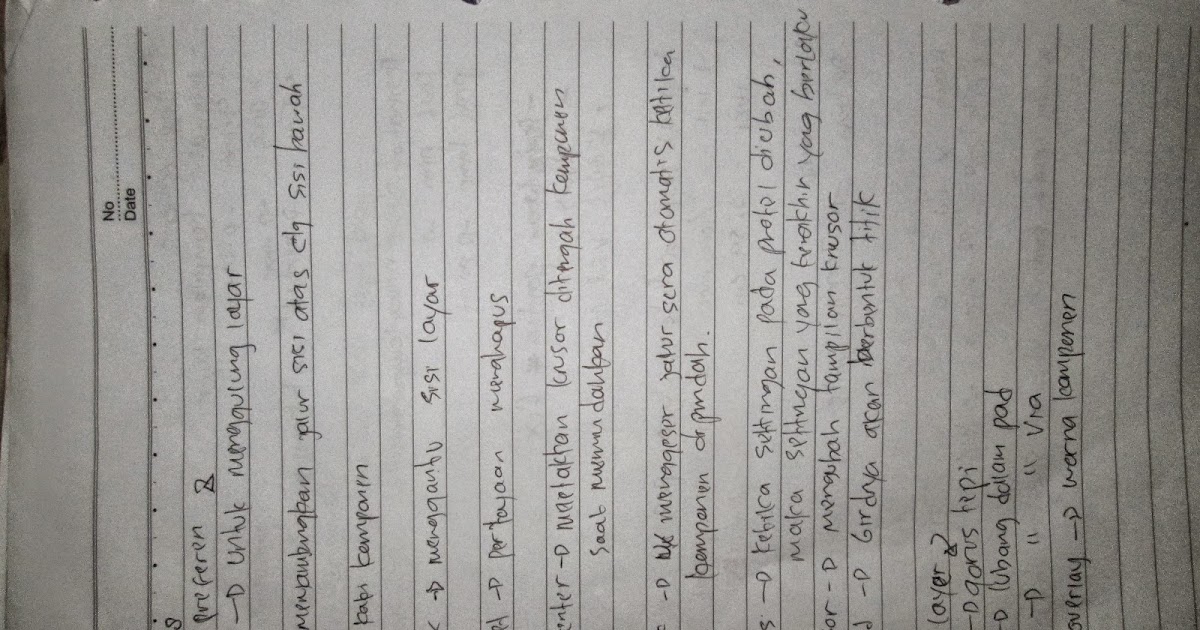 No
Date
preferen 2
→ Untuk menggulung layar
menyambungkan jalur sisi atas dg sisi bawah
kaki komponen
→ mengganti sisi layar
→ pertayaan menghapus
enter → meletakkan krusor ditengah komponen
saat memindahkan
→ menggeser jalur secra otomatis ketika
komponen dipindah.
s → ketika settingan pada protel diubah,
maka settingan yang terakhir yang berlaku
or → mengubah tampilan krusor
d → Girdnya akan berbentuk titik
layer 2
→ Garus tepi
→ lubang dallam pad
→ " " Via
overlay → warna komponen